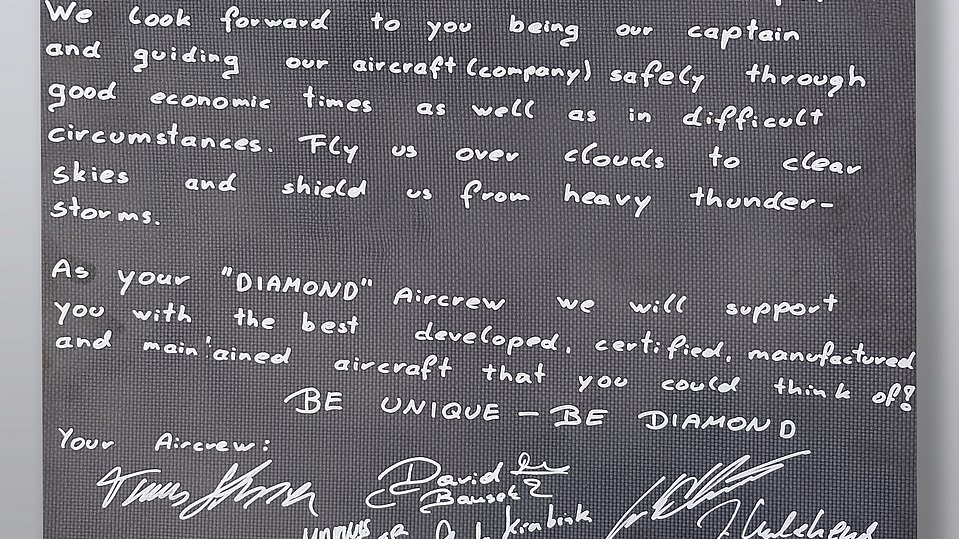 We look forward to you being our captain
and guiding our aircraft (company) safely through
good economic times as well as in difficult
circumstances. Fly us over clouds to clear
skies and shield us from heavy thunder-
storms.
As your "DIAMOND" Aircrew we will support
you with the best developed, certified, manufactured
and main'ained aircraft that you could think of!
BE UNIQUE - BE DIAMOND
Your Aircrew:
David